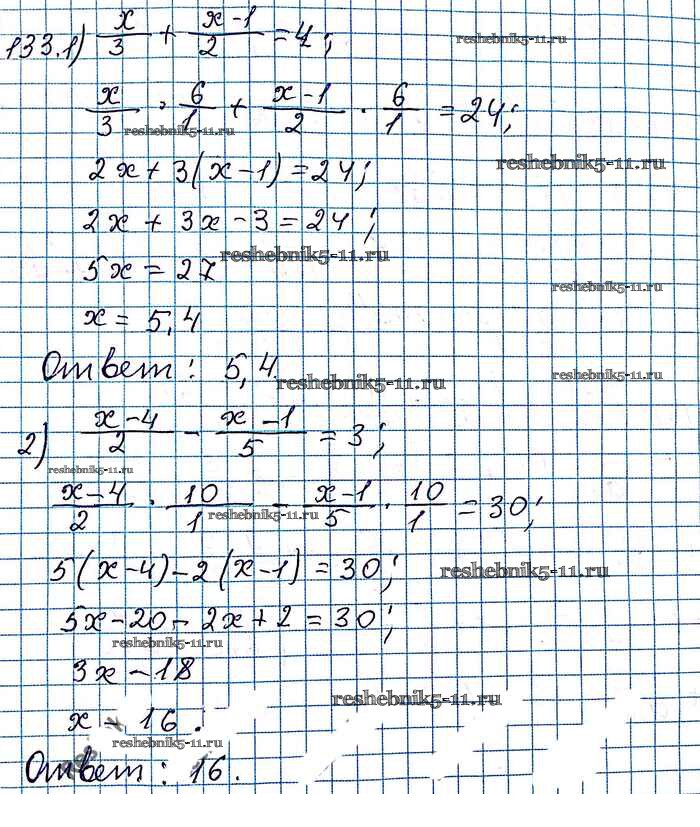 133.1) x/3 + (x-1)/2 = 4;
reshebnik5-11.ru
x/3 · 6/1 + (x-1)/2 · 6/1 = 24;
reshebnik5-11.ru
reshebnik5-11.ru
2x + 3(x-1) = 24;
2x + 3x - 3 = 24;
reshebnik5-11.ru
5x = 27
reshebnik5-11.ru
x = 5,4
Ответ: 5,4.
reshebnik5-11.ru
reshebnik5-11.ru
2) (x-4)/2 - (x-1)/5 = 3;
reshebnik5-11.ru
(x-4)/2 · 10/1 - (x-1)/5 · 10/1 = 30;
reshebnik5-11.ru
5(x-4) - 2(x-1) = 30;
reshebnik5-11.ru
5x - 20 - 2x + 2 = 30;
reshebnik5-11.ru
3x - 18
reshebnik5-11.ru
x 16.
reshebnik5-11.ru
Ответ: 16.